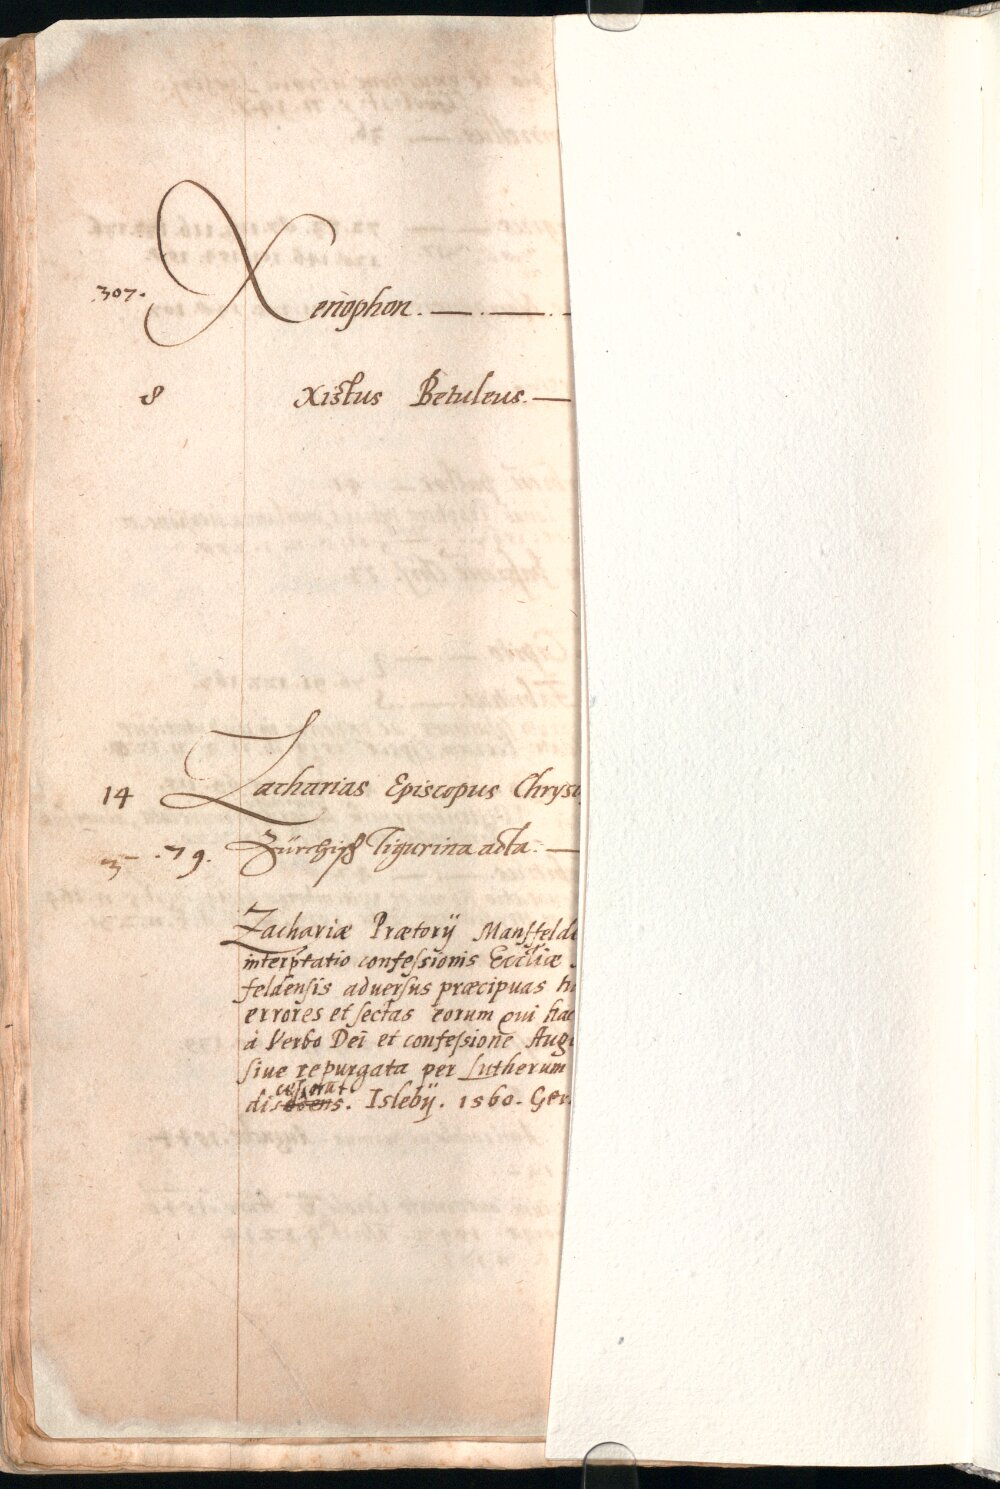 307. Xenophon. — . — . —
8 Xistus Betuleus. —
14 Zacharias Episcopus Chryso
79. Zürchisch Tigurina acta. —
Zachariæ Prætorij Mansfeld
interptatio confessionis Eccliæ
feldensis adversus præcipuas
errores et sectas eorum qui hac
à Verbo Dei et confessione Aug
sive repurgata per Lutherum
Islebij. 1560. Ger.